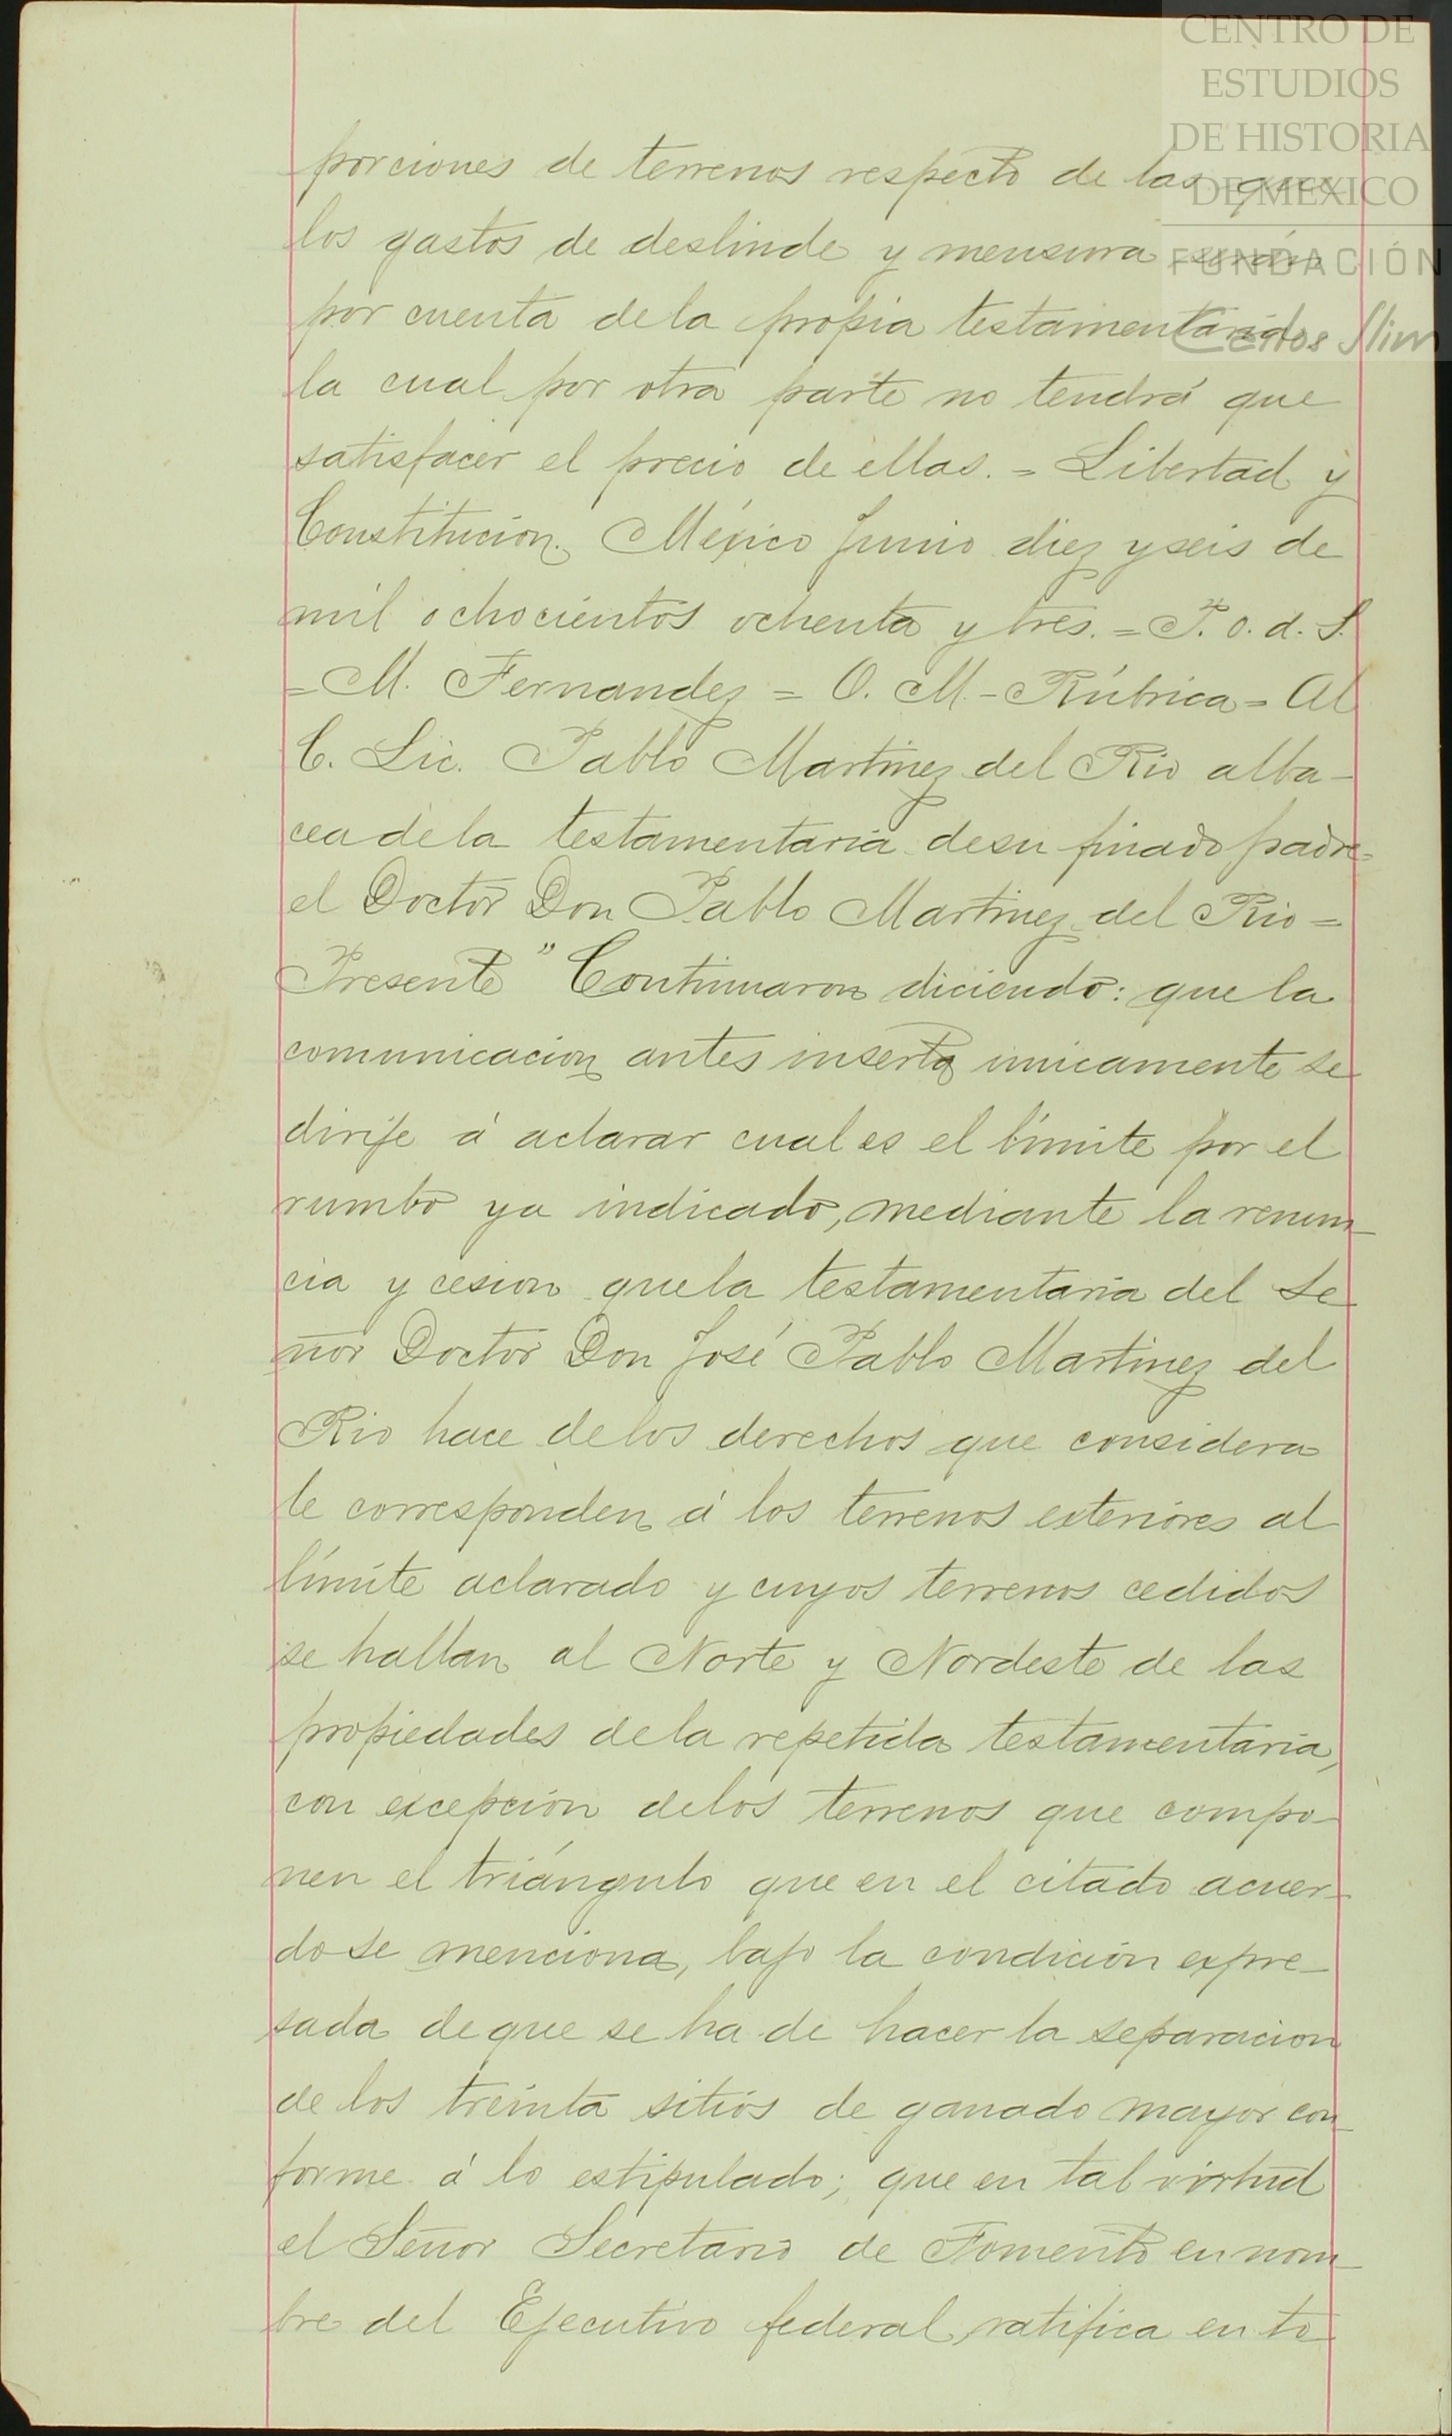 CENTRO DE
ESTUDIOS
DE HISTORIA
DE MEXICO
FUNDACIÓN
Carlos Slim
porciones de terrenos respecto de las que
los gastos de deslinde y mensura serán
por cuenta de la propia testamentaria
la cual por otra parte no tendrá que
satisfacer el precio de ellas. = Libertad y
Constitución. México Junio diez y seis de
mil ochocientos ochenta y tres. = P. o. d. S.
= M. Fernandez = O. M. - Rúbrica = Al
C. Lic. Pablo Martinez del Rio alba-
cea de la testamentaria de su finado padre
el Doctor Don Pablo Martinez del Rio =
Presente" Continuaron diciendo: que la
comunicacion antes inserta unicamente se
dirije á aclarar cual es el límite por el
rumbo ya indicado, mediante la renun-
cia y cesion que la testamentaria del Se
ñor Doctor Don José Pablo Martinez del
Rio hace de los derechos que considera
le corresponden á los terrenos exteriores al
límite aclarado y cuyos terrenos cedidos
se hallan al Norte y Nordeste de las
propiedades de la repetida testamentaria,
con excepción de los terrenos que compo-
nen el triángulo que en el citado acuer-
do se menciona, bajo la condición expre-
sada de que se ha de hacer la separacion
de los treinta sitios de ganado mayor con-
forme á lo estipulado; que en tal virtud
el Señor Secretario de Fomento en nom-
bre del Ejecutivo federal ratifica en to